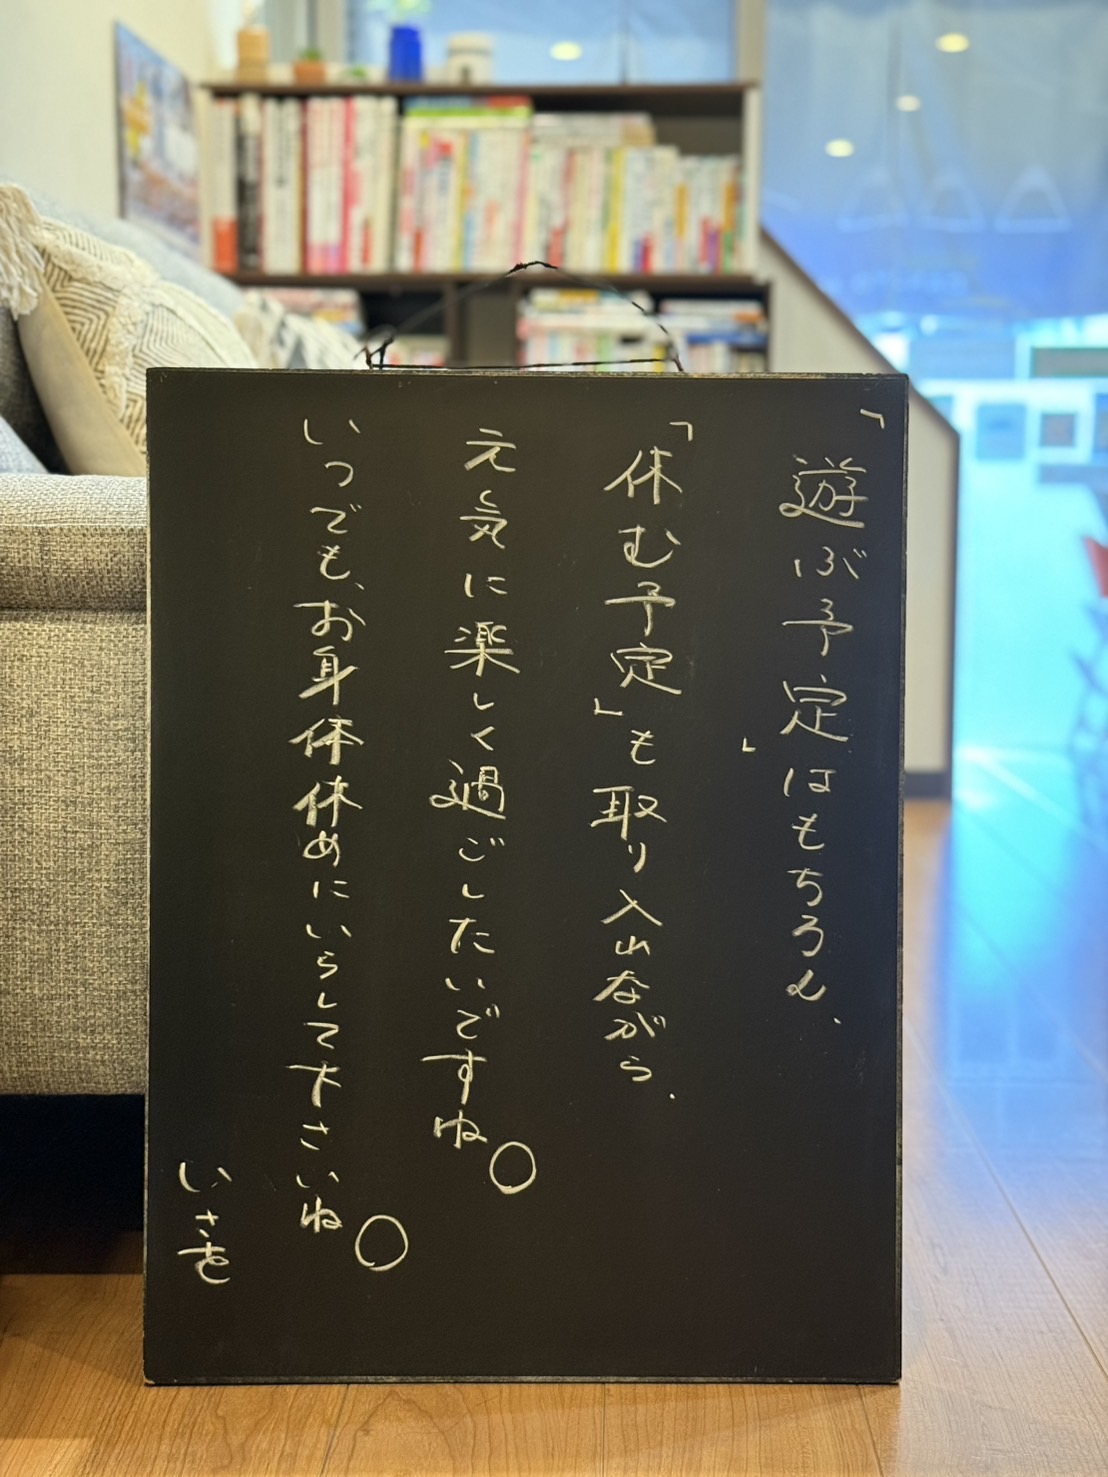 「遊ぶ予定」はもちろん、
「休む予定」も取り入れながら、
元気に楽しく過ごしたいですね。
いつでも、お身体休めにいらして下さいね。
いさを